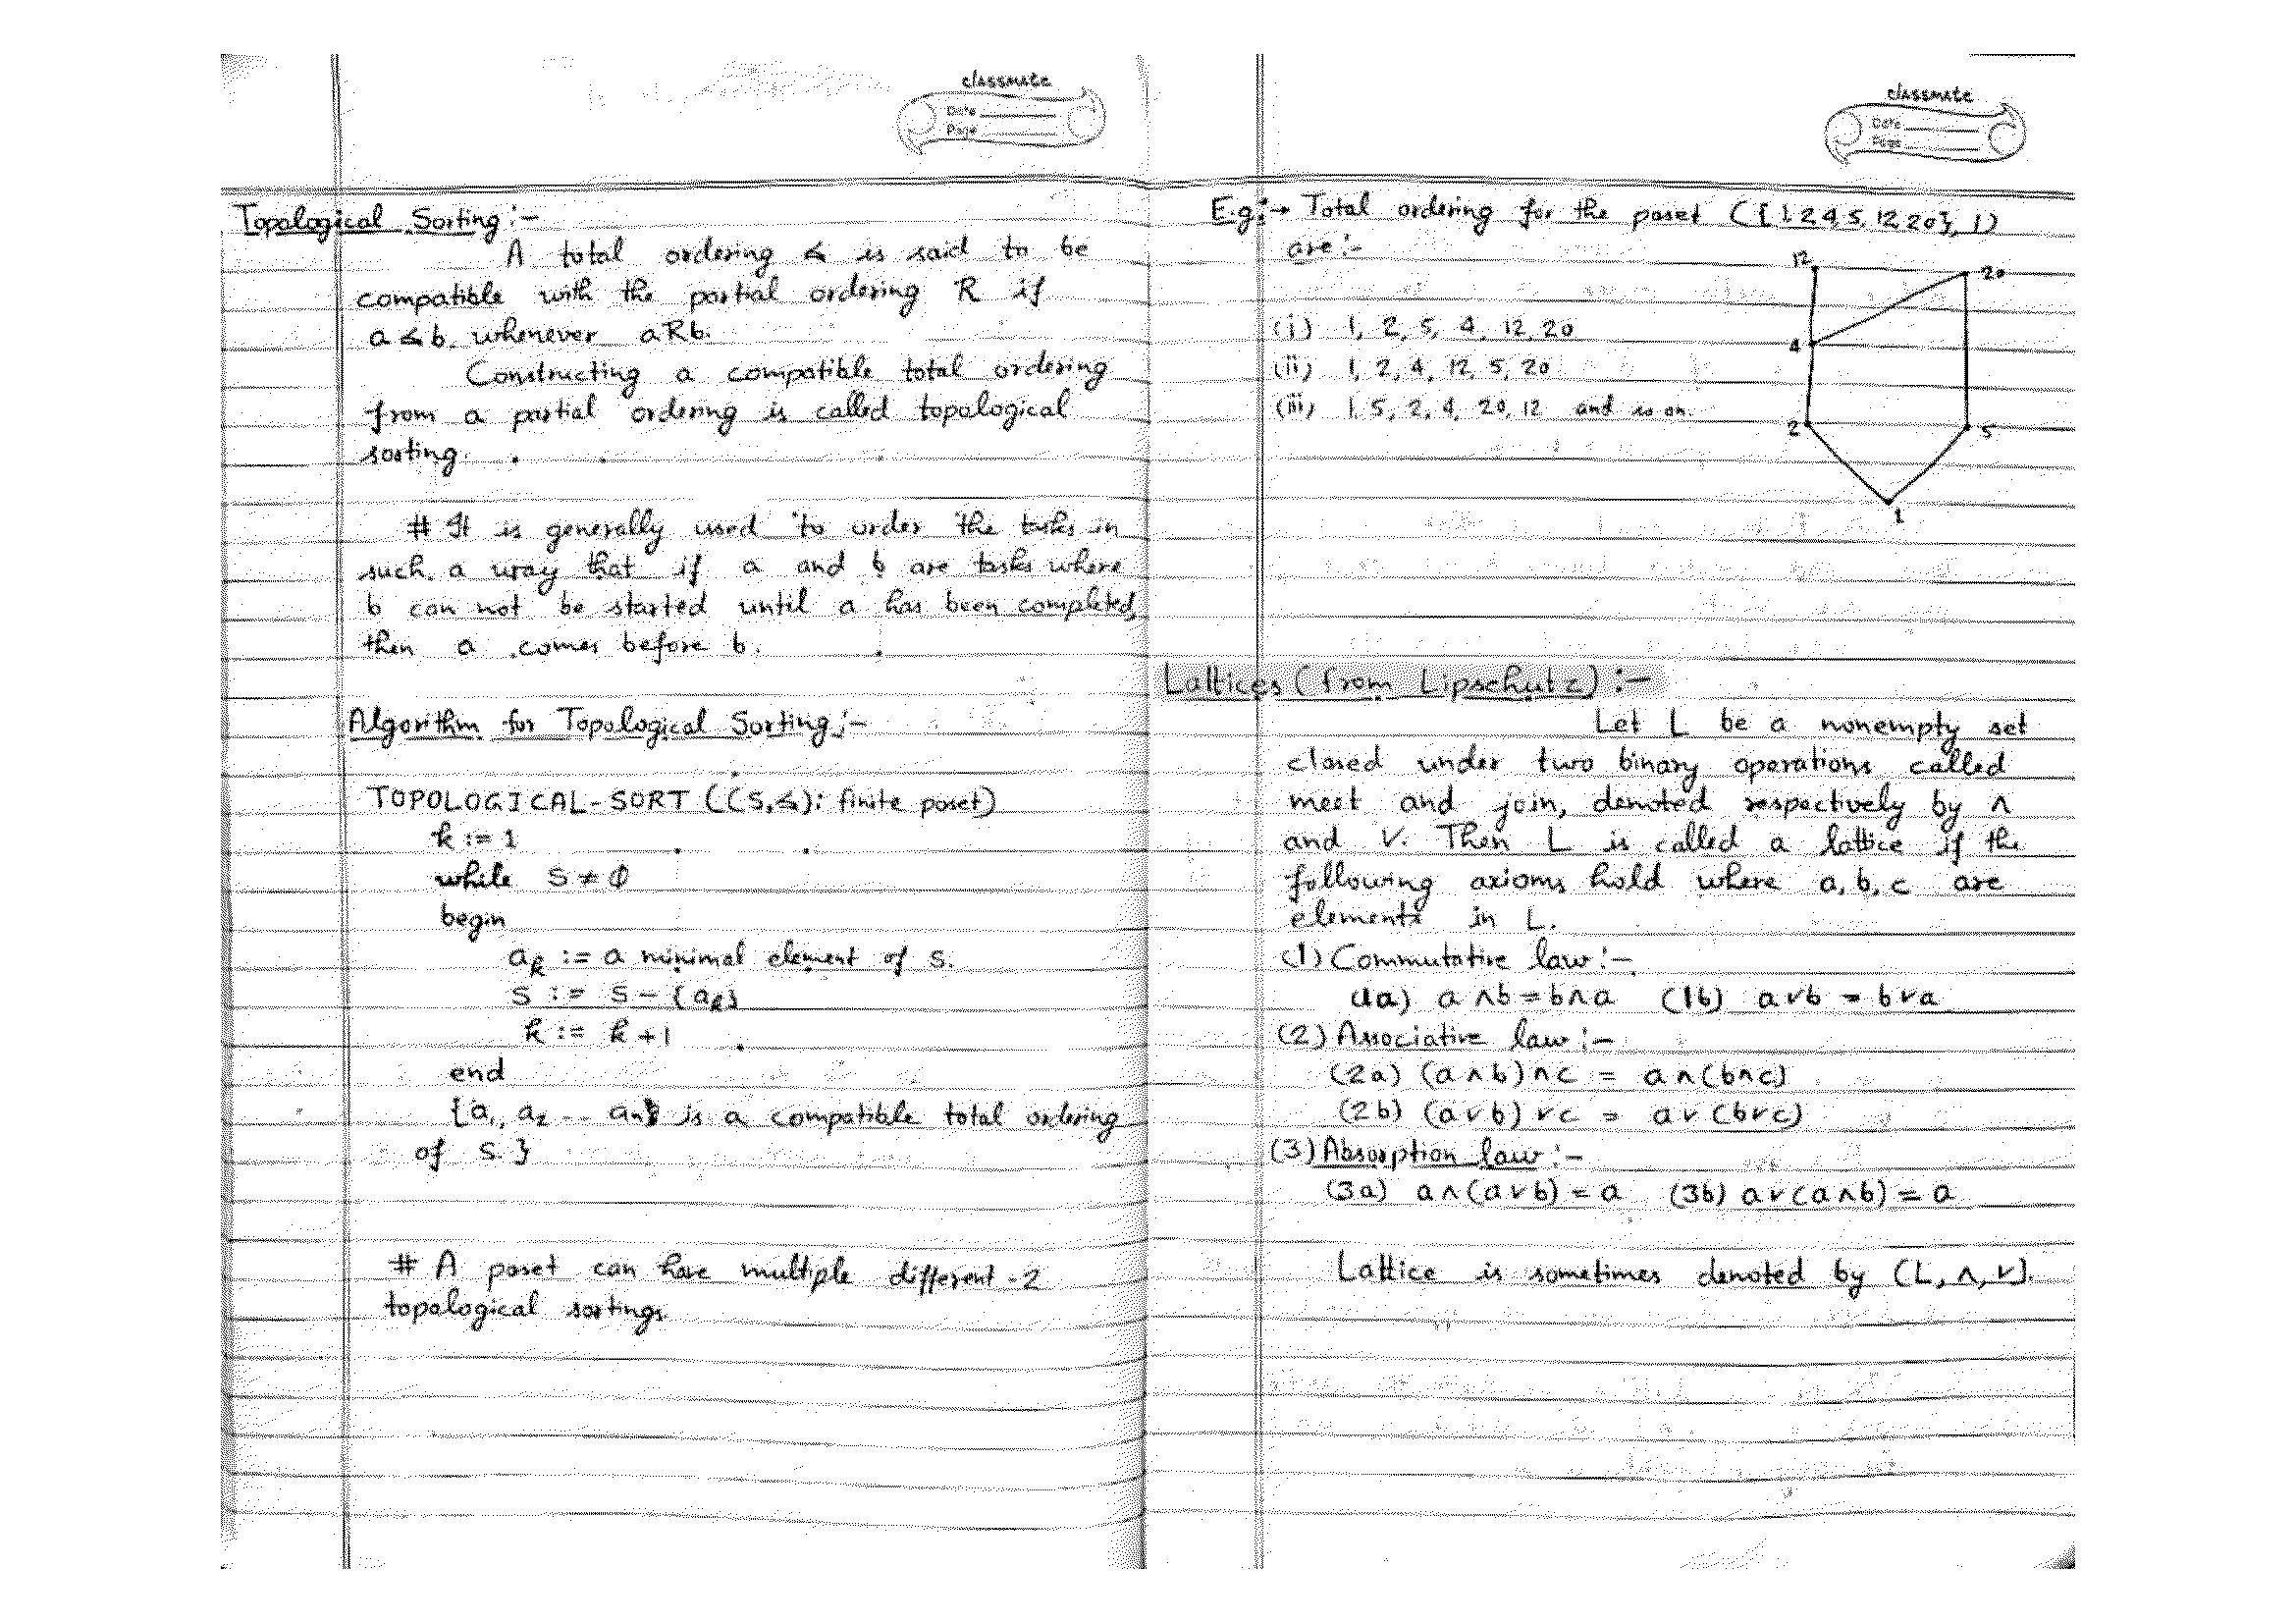 classmate
Date
Page
Topological Sorting :-
A total ordering ≼ is said to be
compatible with the partial ordering R if
a ≼ b whenever aRb.
Constructing a compatible total ordering
from a partial ordering is called topological
sorting.
# It is generally used to order the tasks in
such a way that if a and b are tasks where
b can not be started until a has been completed,
then a comes before b.
Algorithm for Topological Sorting :-
TOPOLOGICAL-SORT ((S,≼): finite poset)
k := 1
while S ≠ ∅
begin
aₖ := a minimal element of S.
S := S - {aₖ}
k := k+1
end
{a₁, a₂ -- aₙ} is a compatible total ordering
of S. }
# A poset can have multiple different-2
topological sortings.
classmate
Date
Page
E.g:→ Total ordering for the poset ({1 2 4, 5, 12, 20}, |)
are :-
12
20
(i) 1, 2, 5, 4, 12, 20
4
(ii) 1, 2, 4, 12, 5, 20
(iii) 1, 5, 2, 4, 20, 12 and so on.
2
5
1
Lattices (from Lipschutz) :-
Let L be a nonempty set
closed under two binary operations called
meet and join, denoted respectively by ∧
and ∨. Then L is called a lattice if the
following axioms hold where a, b, c are
elements in L.
(1) Commutative law :-
(1a) a ∧ b = b ∧ a (1b) a ∨ b = b ∨ a
(2) Associative law :-
(2a) (a ∧ b) ∧ c = a ∧ (b ∧ c)
(2b) (a ∨ b) ∨ c = a ∨ (b ∨ c)
(3) Absorption law :-
(3a) a ∧ (a ∨ b) = a (3b) a ∨ (a ∧ b) = a
Lattice is sometimes denoted by (L, ∧, ∨).